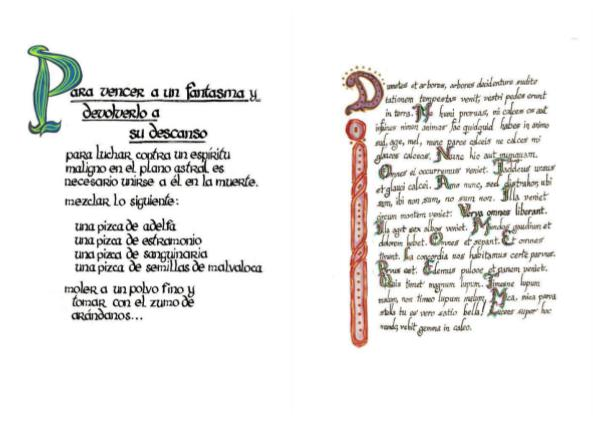 Para vencer a un fantasma y
devolverlo a
su descanso
para luchar contra un espíritu
maligno en el plano astral es
necesario unirse a él en la muerte.
mezclar lo siguiente:
una pizca de adelfa
una pizca de estramonio
una pizca de sanguinaria
una pizca de semillas de malvaloca
moler a un polvo fino y
tomar con el zumo de
arándanos...
et arbores, arbores
tempestus venit, vestri pedes erunt
in terra. Ne huni mi calceos os aut
nimon animor fac quidguid habes in animo
sud, age, mel, nunc parce calceis ne calceo mi
glauces calceos. Nunc hic aut nunquam.
Omnes ei occurremus veniet. Taddeus unsus
et glauci calcei. Amo nunc, sed ubi
sum, ibi non sum, no sum non. Illa veniet
circum montem veniet. Verva omnes liberant.
Illa agit sex albos veniet. Mundos gaudium et
dolorem habet. Omnes et separt. E omnes
timent. In concordia nos habitamus certe parvus.
Prvus est. Edemus pulove et panem veniet.
Quis timet magnum lupum. Timesne lupum
malum, non timeo lupum malum, Mica, mica parva
stella tu es vero satio bella! Luceus super hac
vebit gemma in caleo.